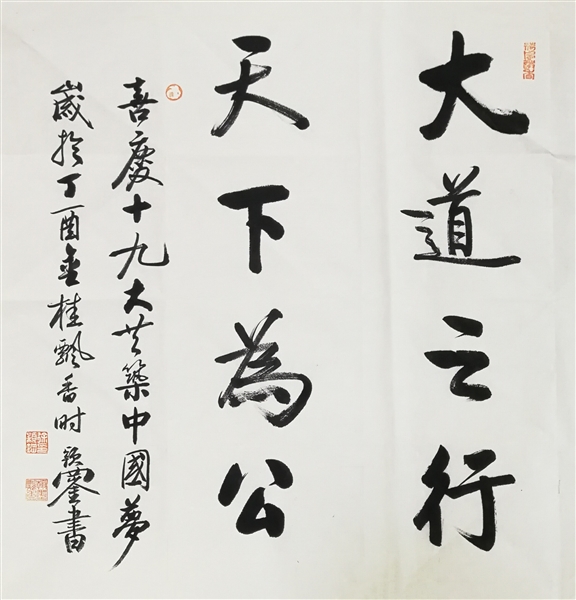 大道之行
天下為公
喜慶十九大共築中國夢
歲於丁酉金桂飄香時 書